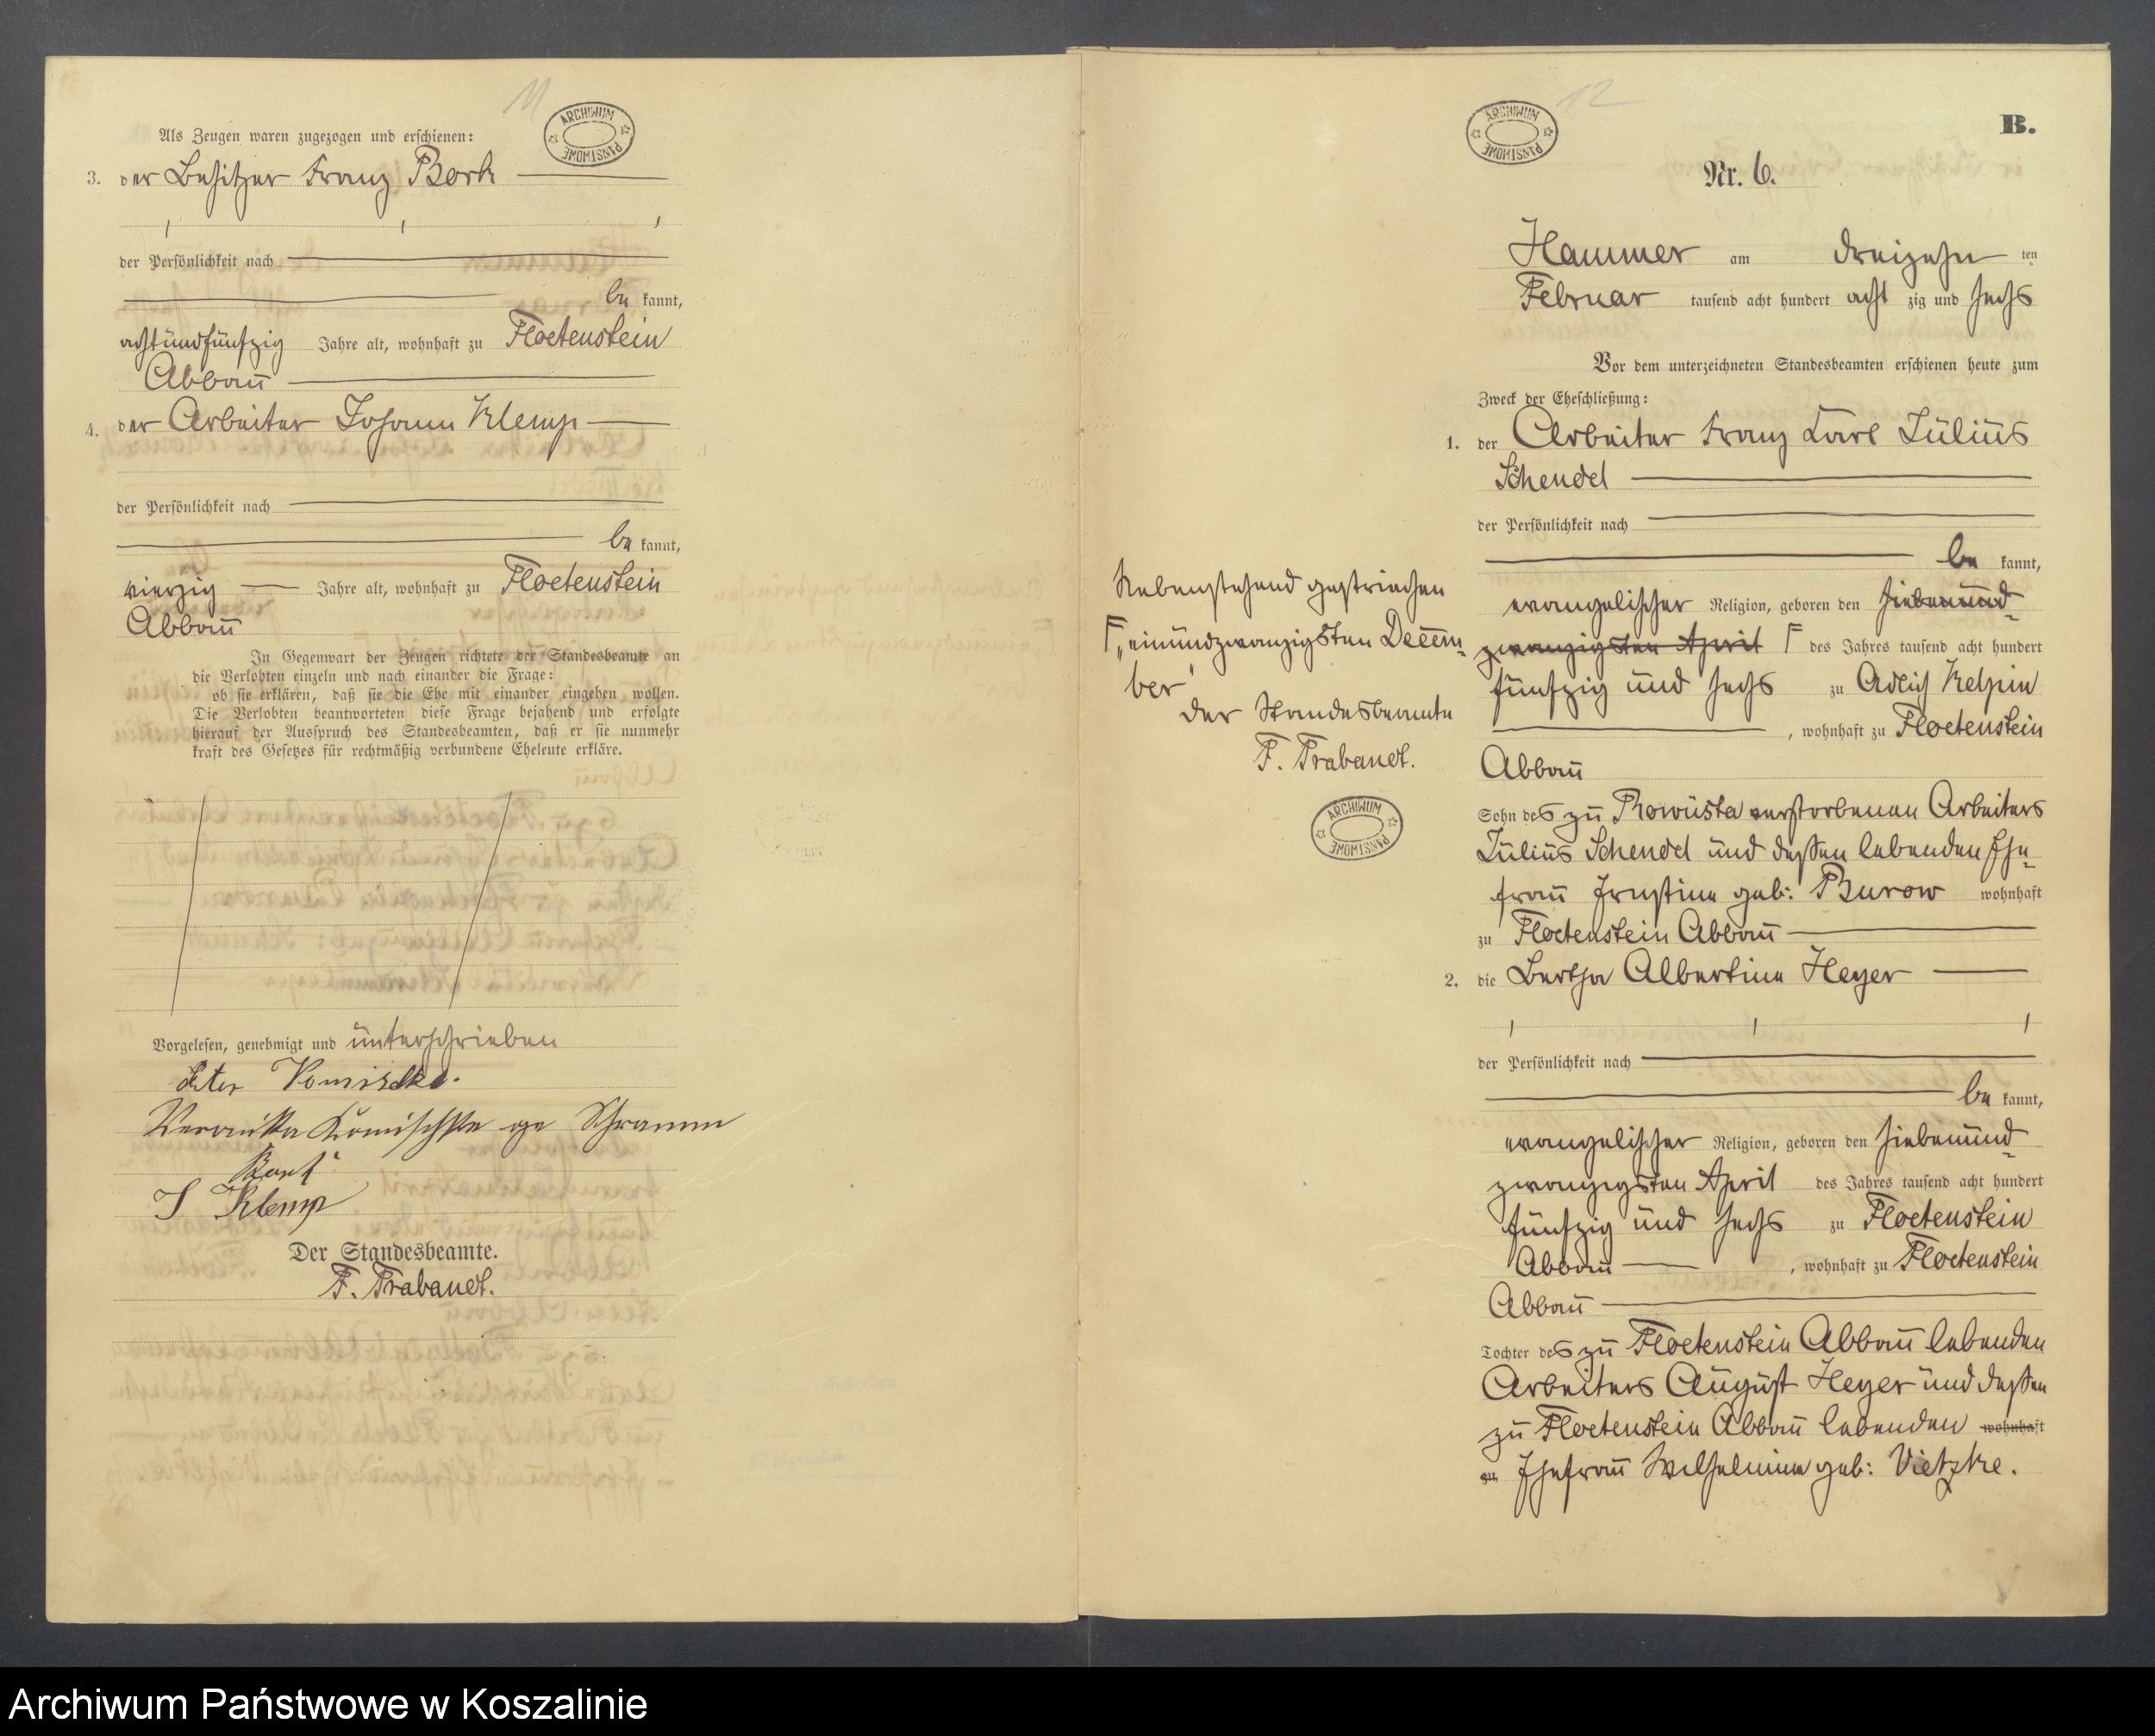 11
ARCHIWUM PAŃSTWOWE
Als Zeugen waren zugezogen und erschienen:
3. der Besitzer Franz Bork
der Persönlichkeit nach
bekannt,
achtundfünfzig Jahre alt, wohnhaft zu Floetenstein
Abbau
4. der Arbeiter Johann Klemp
der Persönlichkeit nach
bekannt,
vierzig Jahre alt, wohnhaft zu Floetenstein
Abbau
In Gegenwart der Zeugen richtete der Standesbeamte an
die Verlobten einzeln und nach einander die Frage:
ob sie erklären, daß sie die Ehe mit einander eingehen wollen.
Die Verlobten beantworteten diese Frage bejahend und erfolgte
hierauf der Ausspruch des Standesbeamten, daß er sie nunmehr
kraft des Gesetzes für rechtmäßig verbundene Eheleute erkläre.
Vorgelesen, genehmigt und unterschrieben
Peter
Veronika Komischke ge Schramm
Bork
J Klemp
Der Standesbeamte.
F. Trabandt.
12
ARCHIWUM PAŃSTWOWE
B.
Nr. 6.
Hammer am dreizehn ten
Februar tausend acht hundert acht zig und sechs
Vor dem unterzeichneten Standesbeamten erschienen heute zum
Zweck der Eheschließung:
1. der Arbeiter Franz Carl Julius
Schendel
der Persönlichkeit nach
bekannt,
evangelischer Religion, geboren den siebenund-
zwanzigsten April Γ des Jahres tausend acht hundert
fünfzig und sechs zu Adlich
, wohnhaft zu Floetenstein
Abbau
Sohn des zu verstorbenen Arbeiters
Julius Schendel und dessen lebenden Ehe-
frau Ernstine geb: Burow wohnhaft
zu Floetenstein Abbau
2. die Bertha Albertine Heyer
der Persönlichkeit nach
bekannt,
evangelischer Religion, geboren den siebenund-
zwanzigsten April des Jahres tausend acht hundert
fünfzig und sechs zu Floetenstein
Abbau , wohnhaft zu Floetenstein
Abbau
Tochter des zu Floetenstein Abbau lebenden
Arbeiters August Heyer und dessen
zu Floetenstein Abbau lebenden wohnhaft
zu Ehefrau Wilhelmine geb: Vietzke.
Nebenstehend gestrichen
Γ „einundzwanzigsten Decem-
ber"
der Standesbeamte
F. Trabandt.
ARCHIWUM PAŃSTWOWE
Archiwum Państwowe w Koszalinie